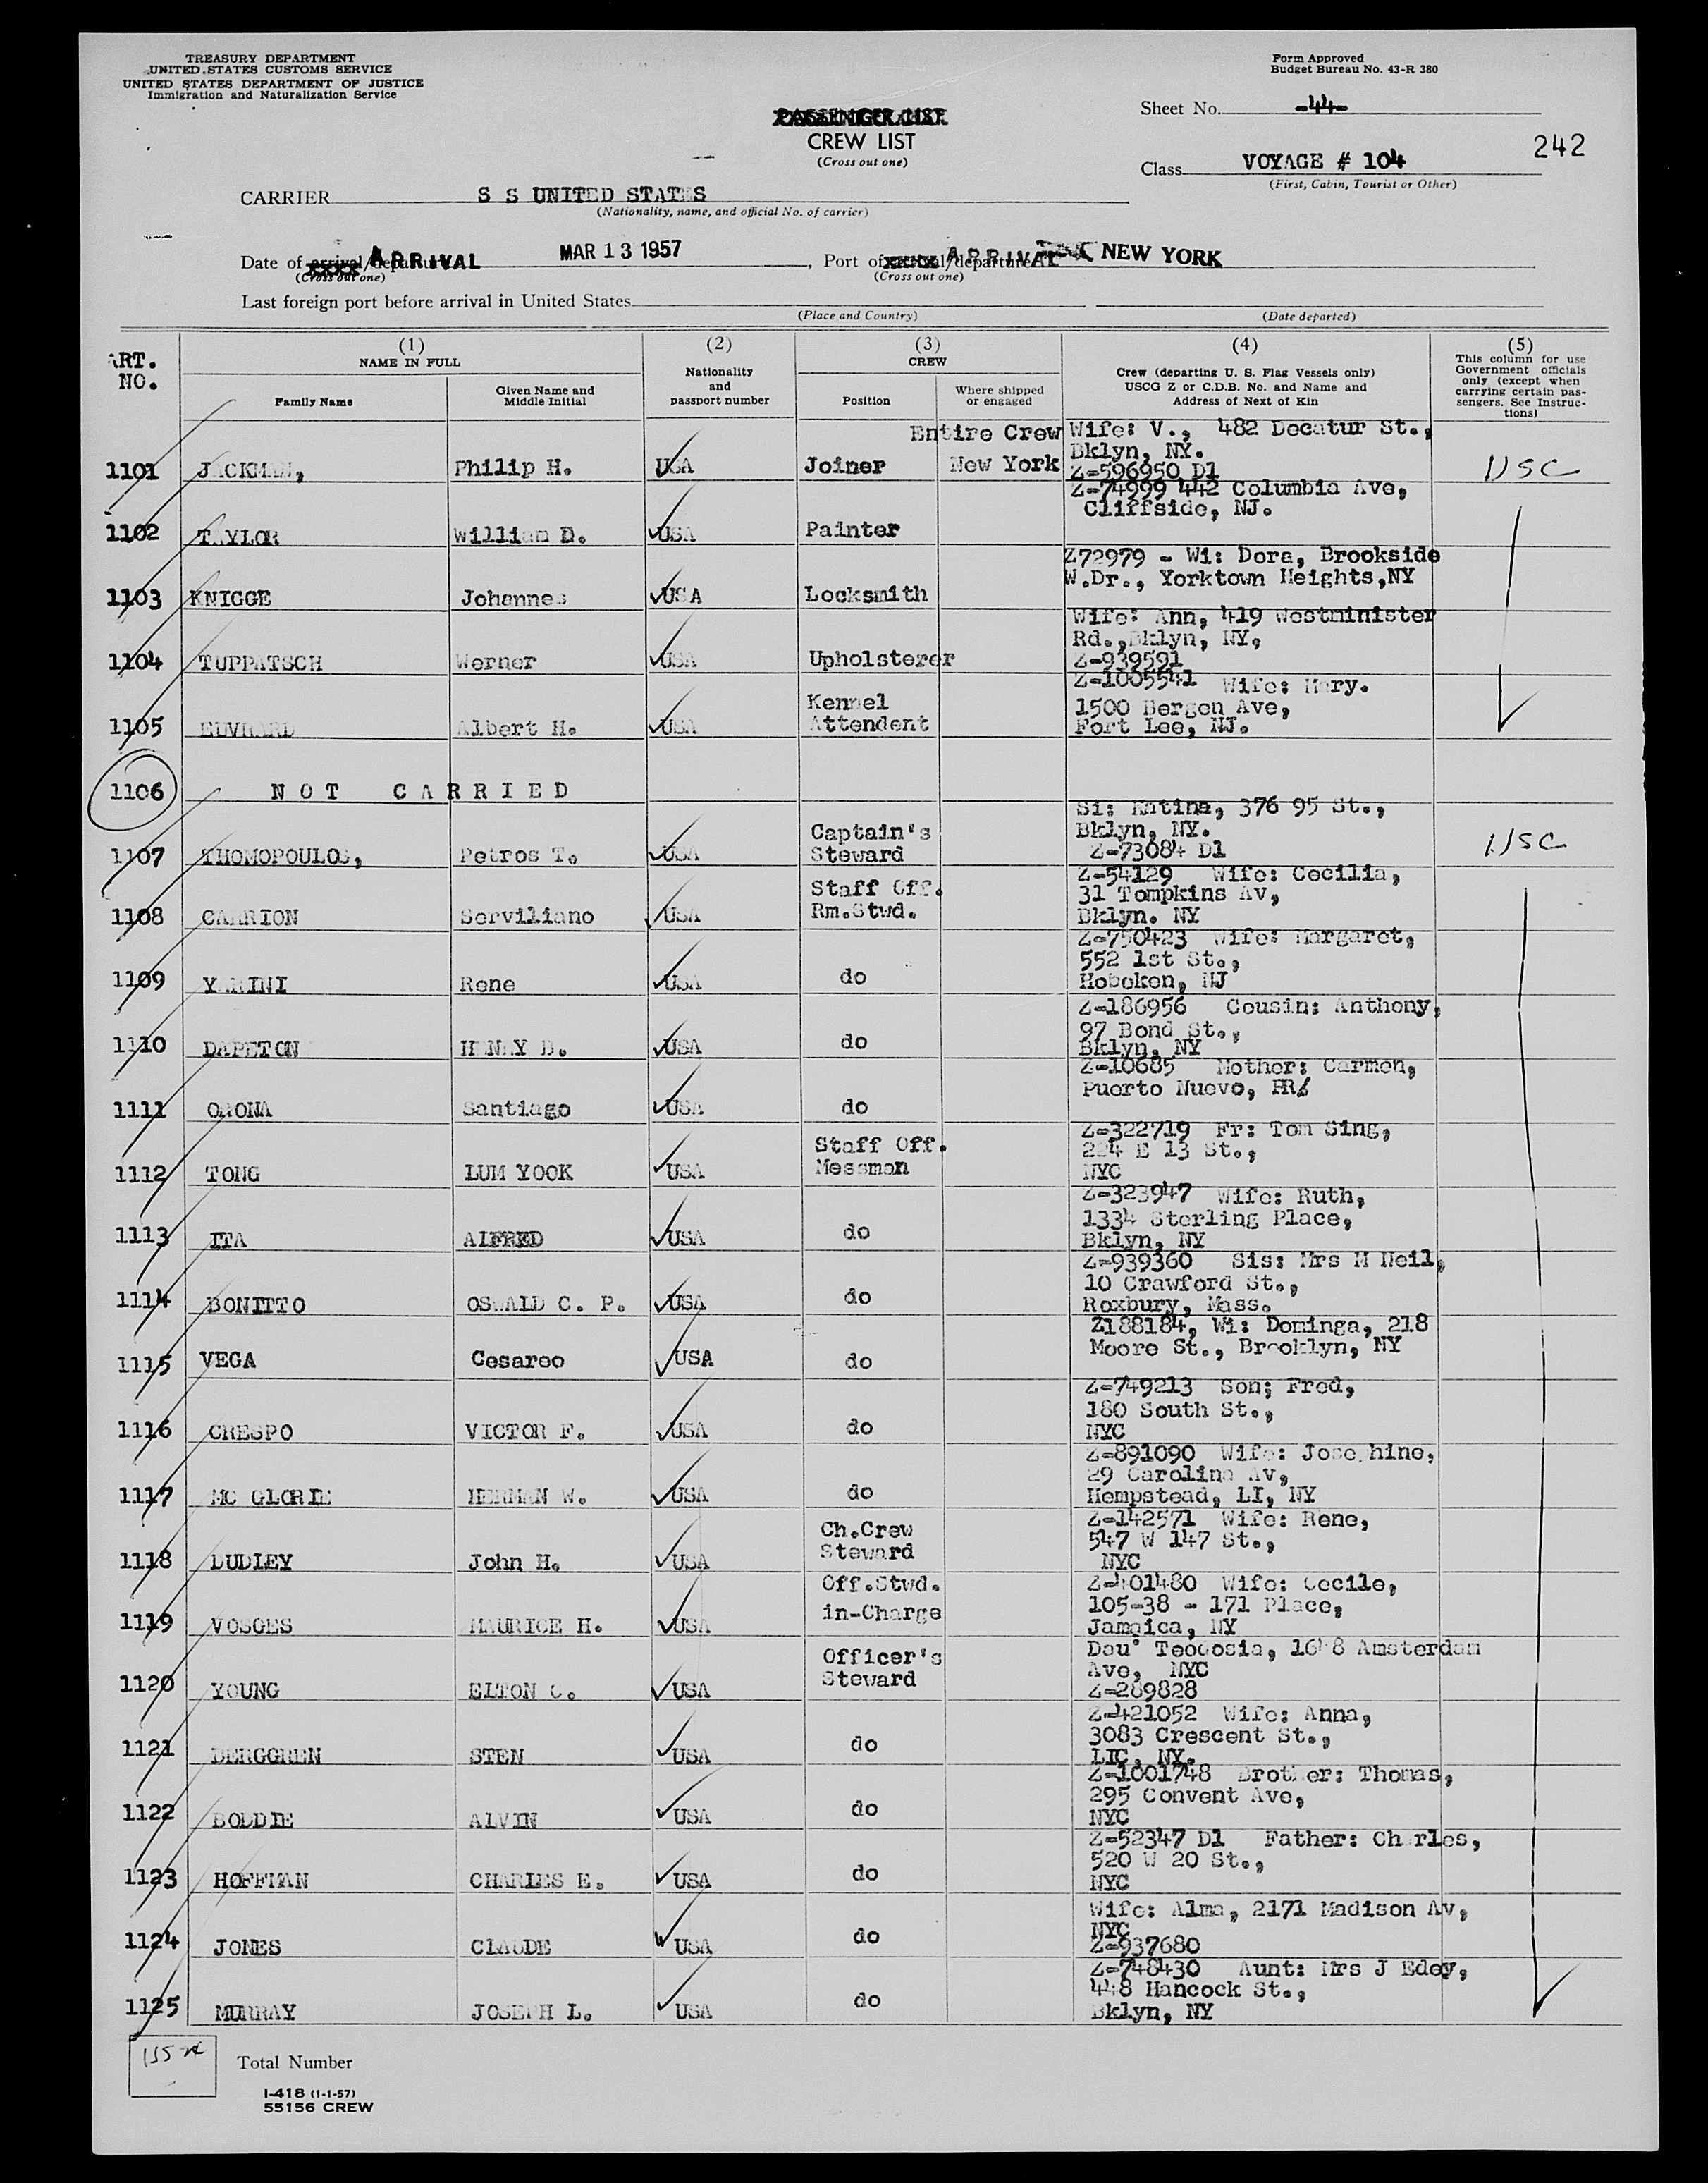 TREASURY DEPARTMENT
UNITED STATES CUSTOMS SERVICE
UNITED STATES DEPARTMENT OF JUSTICE
Immigration and Naturalization Service
Form Approved
Budget Bureau No. 43-R 380
Sheet No. -44-
PASSENGER LIST
CREW LIST
(Cross out one)
242
Class VOYAGE # 104
(First, Cabin, Tourist or Other)
CARRIER S S UNITED STATES
(Nationality, name, and official No. of carrier)
Date of arrival/departure ARRIVAL MAR 13 1957, Port of arrival/departure ARRIVAL NEW YORK
(Cross out one) (Cross out one)
Last foreign port before arrival in United States
(Place and Country) (Date departed)
ART. NO.
(1) NAME IN FULL
Family Name
Given Name and Middle Initial
(2) Nationality and passport number
(3) CREW
Position
Where shipped or engaged
(4) Crew (departing U. S. Flag Vessels only) USCG Z or C.D.B. No. and Name and Address of Next of Kin
(5) This column for use Government officials only (except when carrying certain passengers. See Instructions)
Entire Crew Wife: V., 482 Decatur St.,
Bklyn, NY.
1101 JACKMAN, Philip H. USA Joiner New York Z-596950 D1 USC
Z-74999 442 Columbia Ave,
Cliffside, NJ.
1102 TAYLOR William D. USA Painter
Z72979 - Wi: Dora, Brookside
W.Dr., Yorktown Heights,NY
1103 KNIGGE Johannes USA Locksmith
Wife: Ann, 419 Westminister
Rd.,Bklyn, NY,
1104 TUPPATSCH Werner USA Upholsterer Z-939591
Z-1005541 Wife: Mary.
Kennel 1500 Bergen Ave,
1105 EUVRARD Albert H. USA Attendent Fort Lee, NJ.
1106 NOT CARRIED
Si: Katina, 376 95 St.,
Captain's Bklyn, NY.
1107 THOMOPOULOS, Petros T. USA Steward Z-73084 D1 USC
Z-54129 Wife: Cecilia,
Staff Off. 31 Tompkins Av,
1108 CARRION Serviliano USA Rm.Stwd. Bklyn. NY
Z-750423 Wife: Margaret,
552 1st St.,
1109 YARINI Rene USA do Hoboken, NJ
Z-186956 Cousin: Anthony,
97 Bond St.,
1110 DAPETON HENRY B. USA do Bklyn, NY
Z-10685 Mother: Carmen,
Puerto Nuevo, PR
1111 ORONA Santiago USA do
Z-322719 Fr: Tom Sing,
Staff Off. 224 E 13 St.,
1112 TONG LUM YOOK USA Messman NYC
Z-323947 Wife: Ruth,
1334 Sterling Place,
1113 ITA ALFRED USA do Bklyn, NY
Z-939360 Sis: Mrs M Neil,
10 Crawford St.,
1114 BONITTO OSWALD C. P. USA do Roxbury, Mass.
Z188184, Wi: Dominga, 218
Moore St., Brooklyn, NY
1115 VEGA Cesareo USA do
Z-749213 Son; Fred,
180 South St.,
1116 CRESPO VICTOR F. USA do NYC
Z-891090 Wife: Josephine,
29 Carolina Av,
1117 MC GLORIE HERMAN W. USA do Hempstead, LI, NY
Z-142571 Wife: Rene,
Ch.Crew 547 W 147 St.,
1118 LUDLEY John H. USA Steward NYC
Off.Stwd. Z-401480 Wife: Cecile,
in-Charge 105-38 - 171 Place,
1119 VOSGES MAURICE H. USA Jamaica, NY
Dau: Teodosia, Amsterdam
Officer's Ave, NYC
1120 YOUNG ELTON C. USA Steward Z-289828
Z-421052 Wife: Anna,
3083 Crescent St.,
1121 BERGGREN STEN USA do LIC, NY.
Z-1001748 Brother: Thomas,
295 Convent Ave,
1122 BODDIE ALVIN USA do NYC
Z-52347 D1 Father: Charles,
520 W 20 St.,
1123 HOFFMAN CHARLES E. USA do NYC
Wife: Alma, 2171 Madison Av,
NYC
1124 JONES CLAUDE USA do Z-937680
Z-748430 Aunt: Mrs J Edey,
448 Hancock St.,
1125 MURRAY JOSEPH L. USA do Bklyn, NY
Total Number
I-418 (1-1-57)
55156 CREW